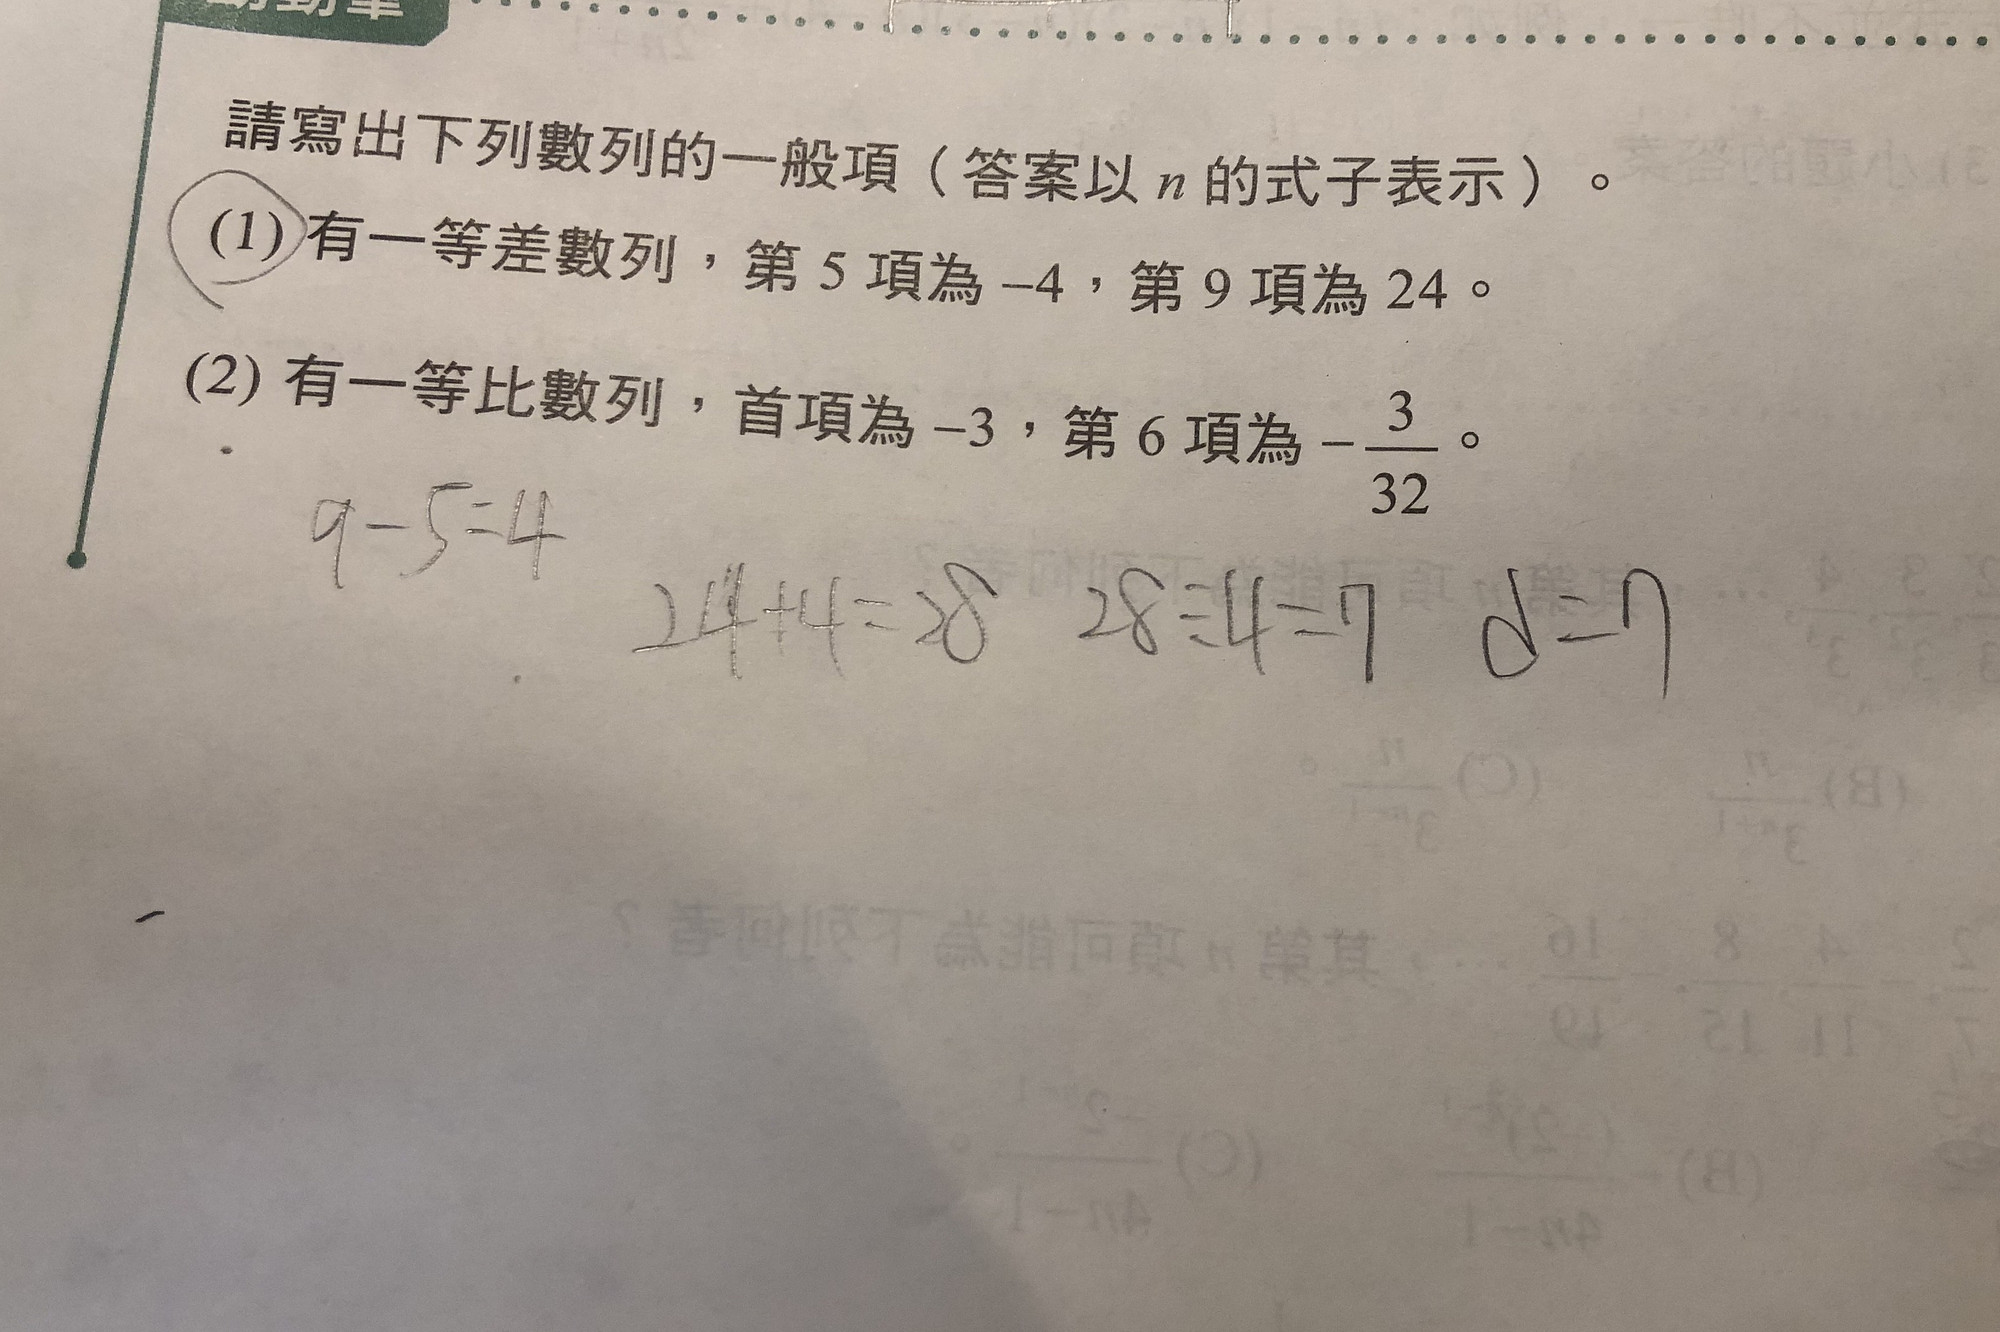 動動筆
請寫出下列數列的一般項（答案以 n 的式子表示）。
(1) 有一等差數列，第 5 項為 –4，第 9 項為 24。
(2) 有一等比數列，首項為 –3，第 6 項為 –3/32。
9-5=4
24+4=28 28÷4=7 d=7